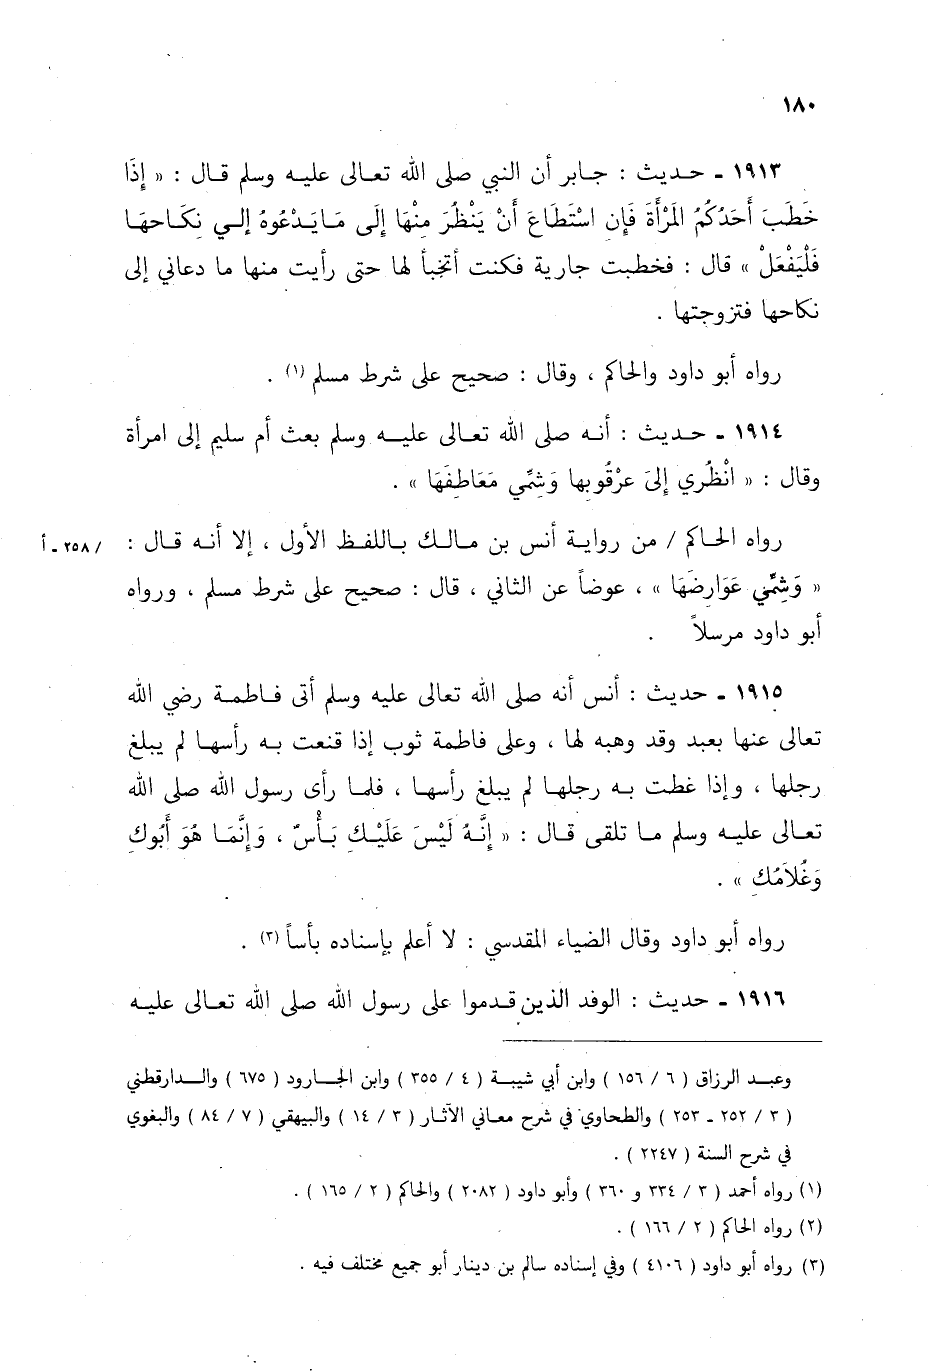 ١٨٠
١٩١٣ ـ حديث : جابر أن النبي صلى الله تعالى عليه وسلم قال : « إِذَا
خَطَبَ أَحَدُكُمُ المَرْأَةَ فَإِن اسْتَطَاعَ أَنْ يَنْظُرَ مِنْهَا إِلَى مَايَدْعُوهُ إلي نكَاحهَا
فَلْيَفْعَلْ » قال : فخطبت جارية فكنت أتخبأ لها حتى رأيت منها ما دعاني إلى
نكاحها فتزوجتها .
رواه أبو داود والحاكم ، وقال : صحيح على شرط مسلم (١) .
١٩١٤ ـ حديث : أنه صلى الله تعالى عليه وسلم بعث أم سليم إلى امرأة
وقال : « انْظُري إِلىَ عرْقُوبها وَشمِّي مَعَاطفَهَا » .
رواه الحاكم / من رواية أنس بن مالك باللفظ الأول ، إلا أنه قال : / ٢٥٨ ـ أ
« وَشمِّي عَوَارضَهَا » ، عوضاً عن الثاني ، قال : صحيح على شرط مسلم ، ورواه
أبو داود مرسلاً .
١٩١٥ ـ حديث : أنس أنه صلى الله تعالى عليه وسلم أتى فاطمة رضي الله
تعالى عنها بعبد وقد وهبه لها ، وعلى فاطمة ثوب إذا قنعت به رأسها لم يبلغ
رجلها ، وإذا غطت به رجلها لم يبلغ رأسها ، فلما رأى رسول الله صلى الله
تعالى عليه وسلم ما تلقى قال : « إِنَّهُ لَيْسَ عَلَيْك بَأْسٌ ، وَإِنَّمَا هُوَ أَبُوك
وَغُلاَمُك » .
رواه أبو داود وقال الضياء المقدسي : لا أعلم بإسناده بأساً (٣) .
١٩١٦ ـ حديث : الوفد الذين قدموا على رسول الله صلى الله تعالى عليه
وعبد الرزاق ( ٦ / ١٥٦ ) وابن أبي شيبة ( ٤ / ٣٥٥ ) وابن الجارود ( ٦٧٥ ) والدارقطني
( ٣ / ٢٥٢ ـ ٢٥٣ ) والطحاوي في شرح معاني الآثار ( ٣ / ١٤ ) والبيهقي ( ٧ / ٨٤ ) والبغوي
في شرح السنة ( ٢٢٤٧ ) .
(١) رواه أحمد ( ٣ / ٣٣٤ و ٣٦٠ ) وأبو داود ( ٢٠٨٢ ) والحاكم ( ٢ / ١٦٥ ) .
(٢) رواه الحاكم ( ٢ / ١٦٦ ) .
(٣) رواه أبو داود ( ٤١٠٦ ) وفي إسناده سالم بن دينار أبو جميع مختلف فيه .